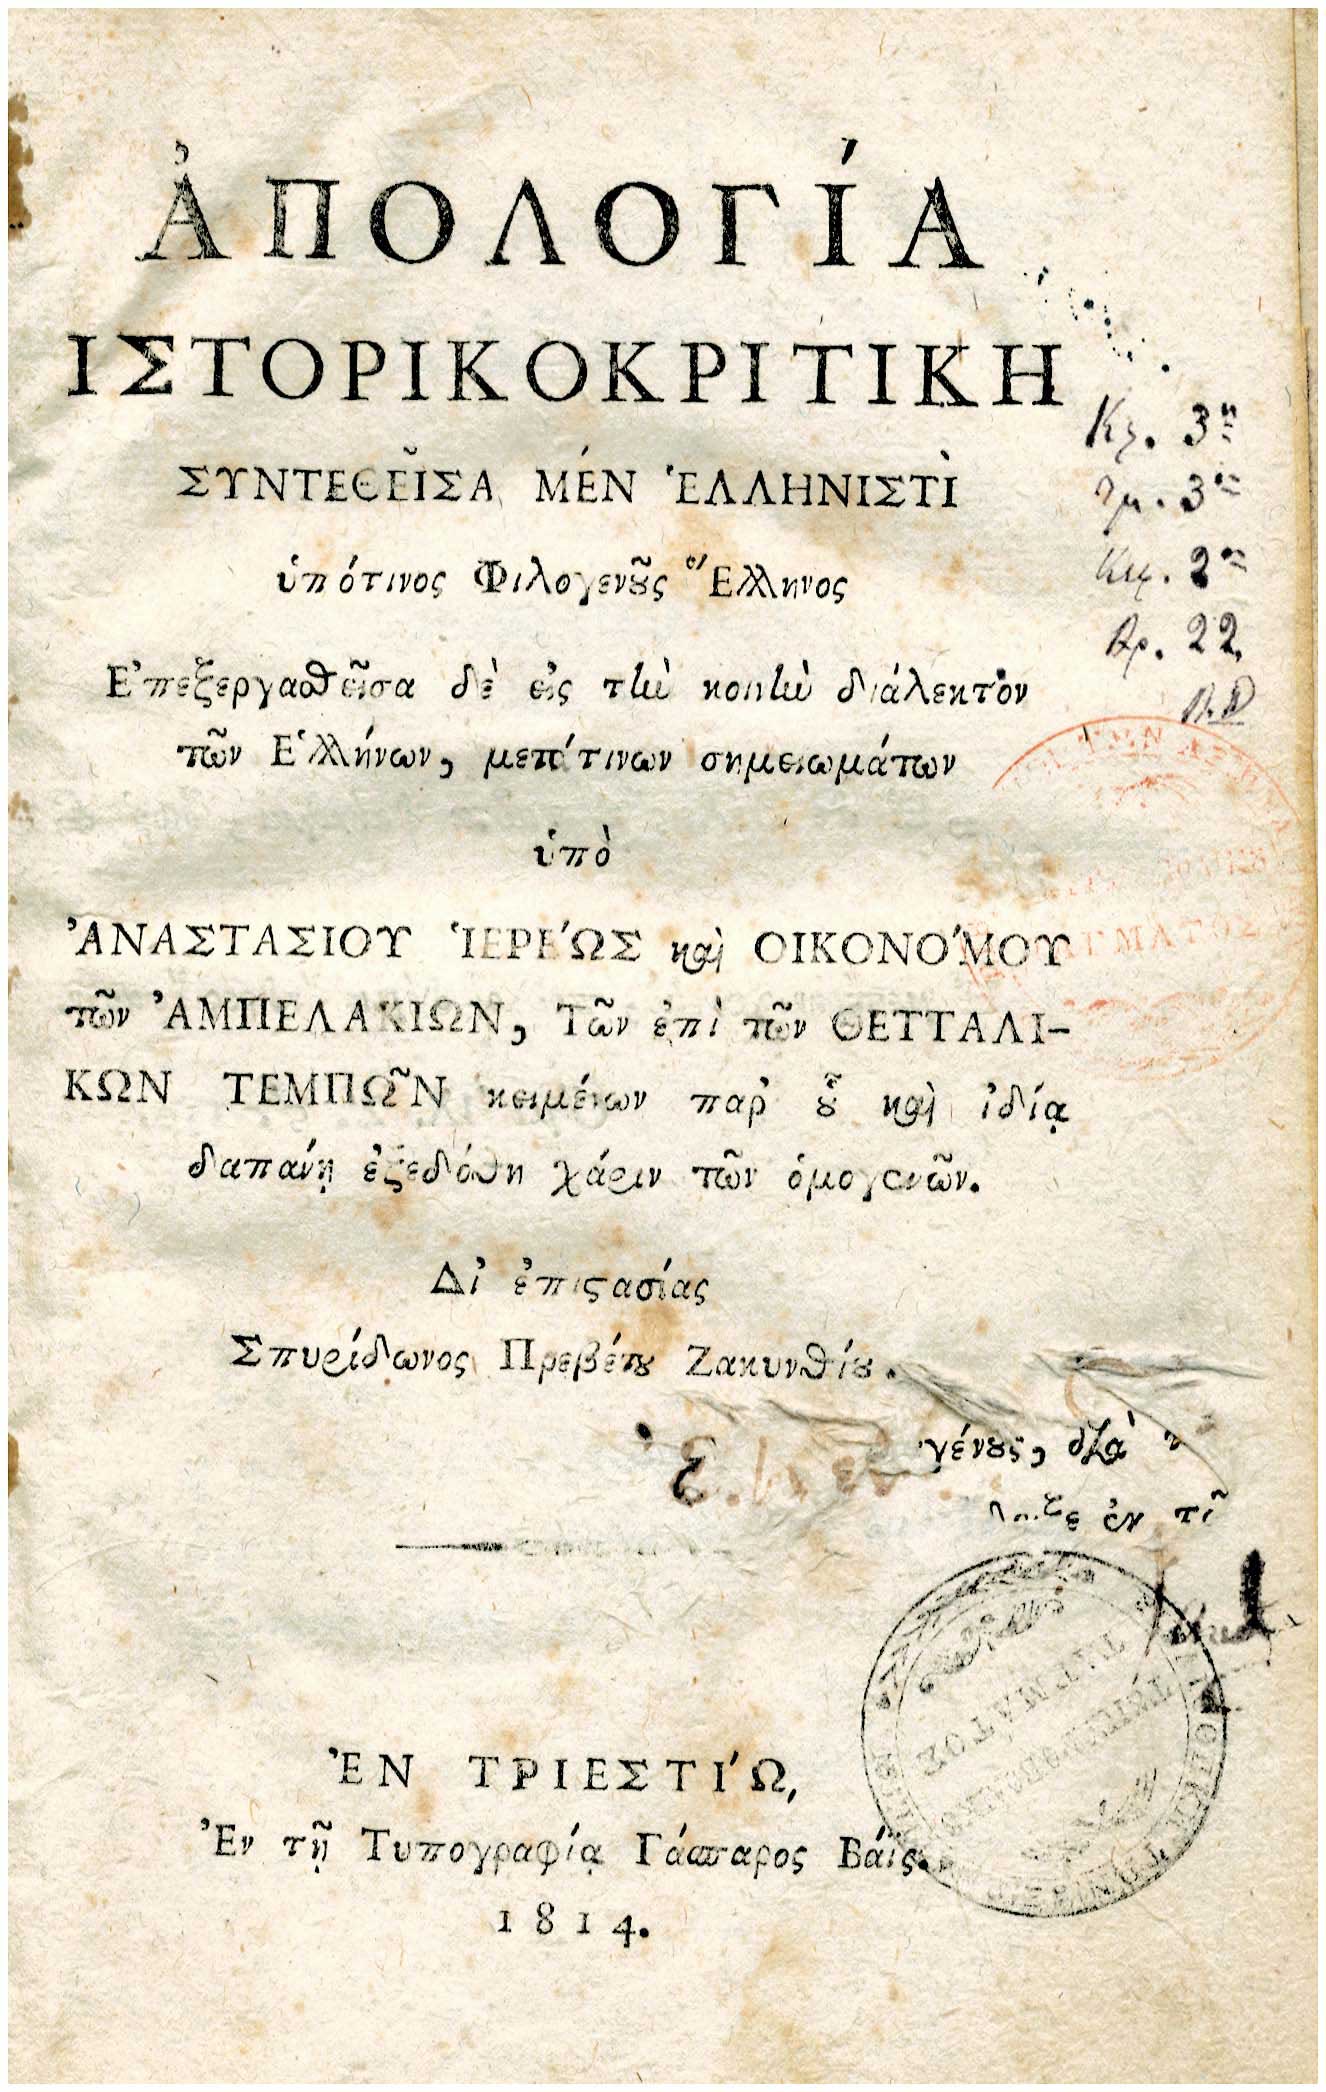 ἈΠΟΛΟΓΊΑ
ΙΣΤΟΡΙΚΟΚΡΙΤΙΚΗ
ΣΥΝΤΕΘΕῖΣΑ ΜΈΝ ἙΛΛΗΝΙΣΤῚ
ὑπότινος Φιλογενοῦς Ἕλληνος
Ἐπεξεργασθεῖσα δὲ εἰς τὴν κοινὴν διάλεκτον
τῶν Ἑλλήνων, μετάτινων σημειωμάτων
ὑπὸ
ἈΝΑΣΤΑΣΙΟΥ ἹΕΡΕΏΣ καὶ ΟΙΚΟΝΌΜΟΥ
τῶν ἈΜΠΕΛΑΚΙΩΝ, Τῶν ἐπὶ τῶν ΘΕΤΤΑΛΙ-
ΚΩΝ ΤΕΜΠΩ͂Ν κειμένων παρ' οὗ καὶ ἰδίᾳ
δαπάνῃ ἐξεδόθη χάριν τῶν ὁμογενῶν.
Δι' ἐπιστασίας
Σπυρίδωνος Πρεβέτου Ζακυνθίου.
γένους, διὰ
ἐν
ἘΝ ΤΡΙΕΣΤΊΩ,
Ἐν τῇ Τυπογραφίᾳ Γάσπαρος Βάϊς.
1814.
Κζ. 3
Τμ. 3
Κιβ. 2
Αρ. 22